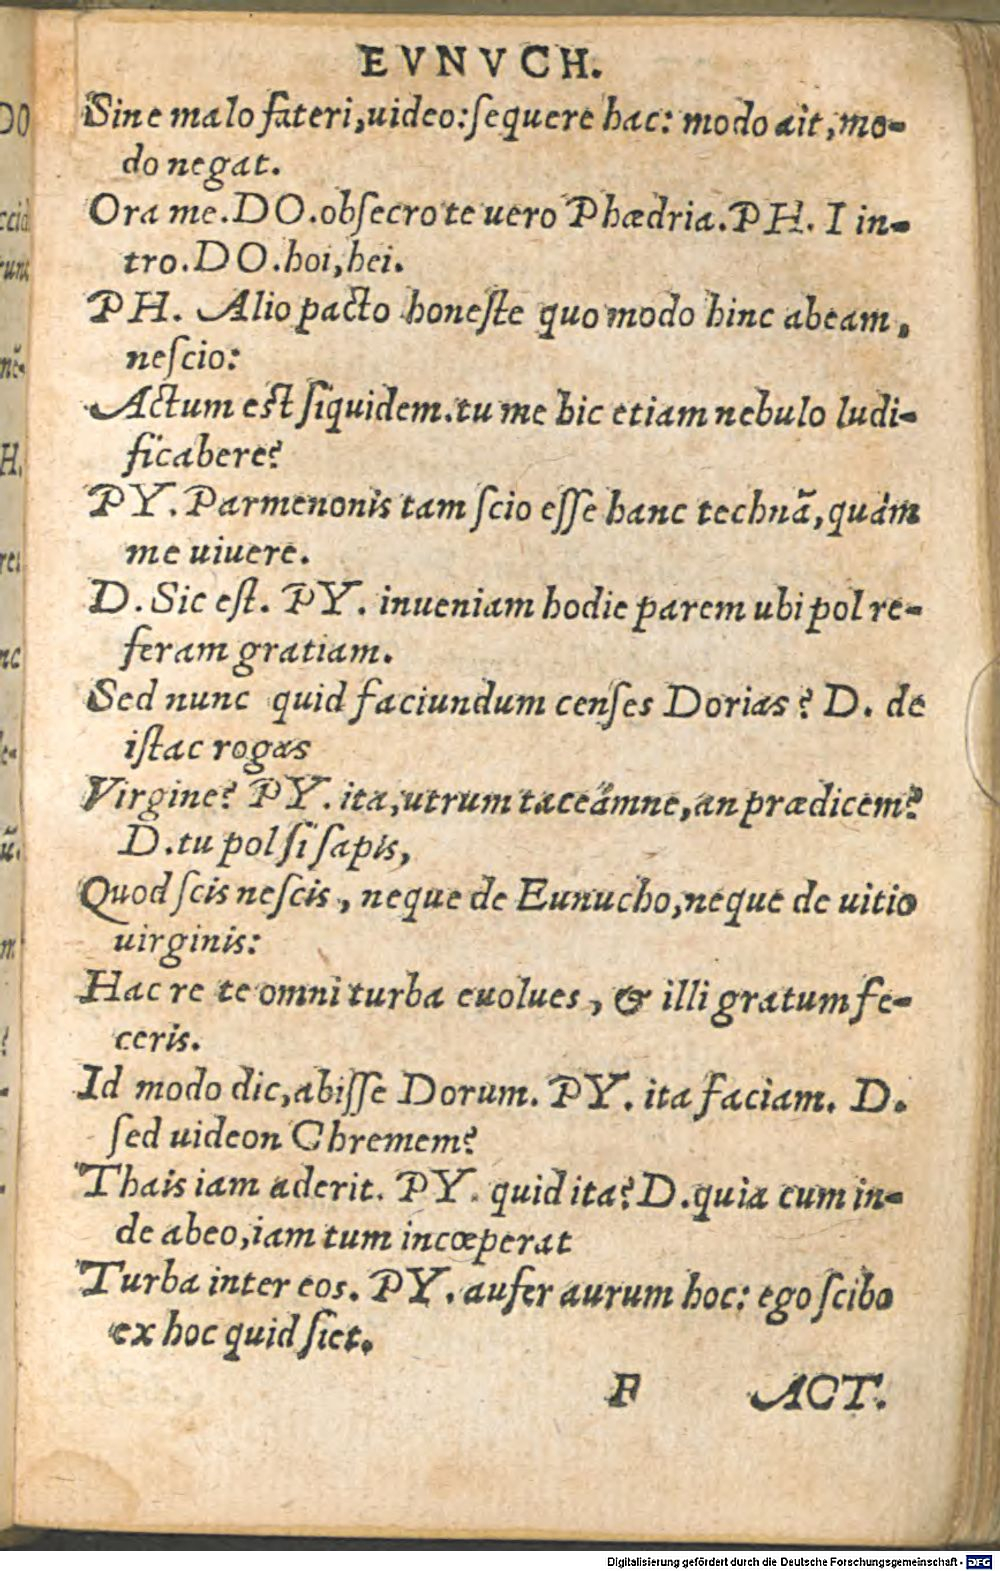 EVNVCH.
Sine malo fateri,uideo:ſequere hac: modo ait,mo-
do negat.
Ora me.DO.obſecro te uero Phædria.PH. I in-
tro.DO.hoi,hei.
PH. Alio pacto honeſte quo modo hinc abeam,
neſcio:
Actum est ſiquidem.tu me hic etiam nebulo ludi-
ficabere?
PY.Parmenonis tam ſcio eſſe hanc technã,quàm
me uiuere.
D.Sic eſt. PY. inueniam hodie parem ubi pol re-
feram gratiam.
Sed nunc quid faciundum cenſes Dorias? D. de
iſtac rogas
Virgine? PY.ita,utrum taceámne,an prædicem?
D.tu pol ſi ſapis,
Quod ſcis neſcis, neque de Eunucho,neque de uitio
uirginis:
Hac re te omni turba euolues, & illi gratum fe-
ceris.
Id modo dic,abiſſe Dorum. PY. ita faciam. D.
ſed uideon Chremem?
Thais iam aderit. PY. quid ita?D.quia cum in-
de abeo,iam tum incœperat
Turba inter eos. PY.aufer aurum hoc: ego ſcibo
ex hoc quid ſiet.
F ACT.
DO
ccid
runc
nē-
H.
re:
nc
le-
ū.
m
?
Digitalisierung gefördert durch die Deutsche Forschungsgemeinschaft - DFG